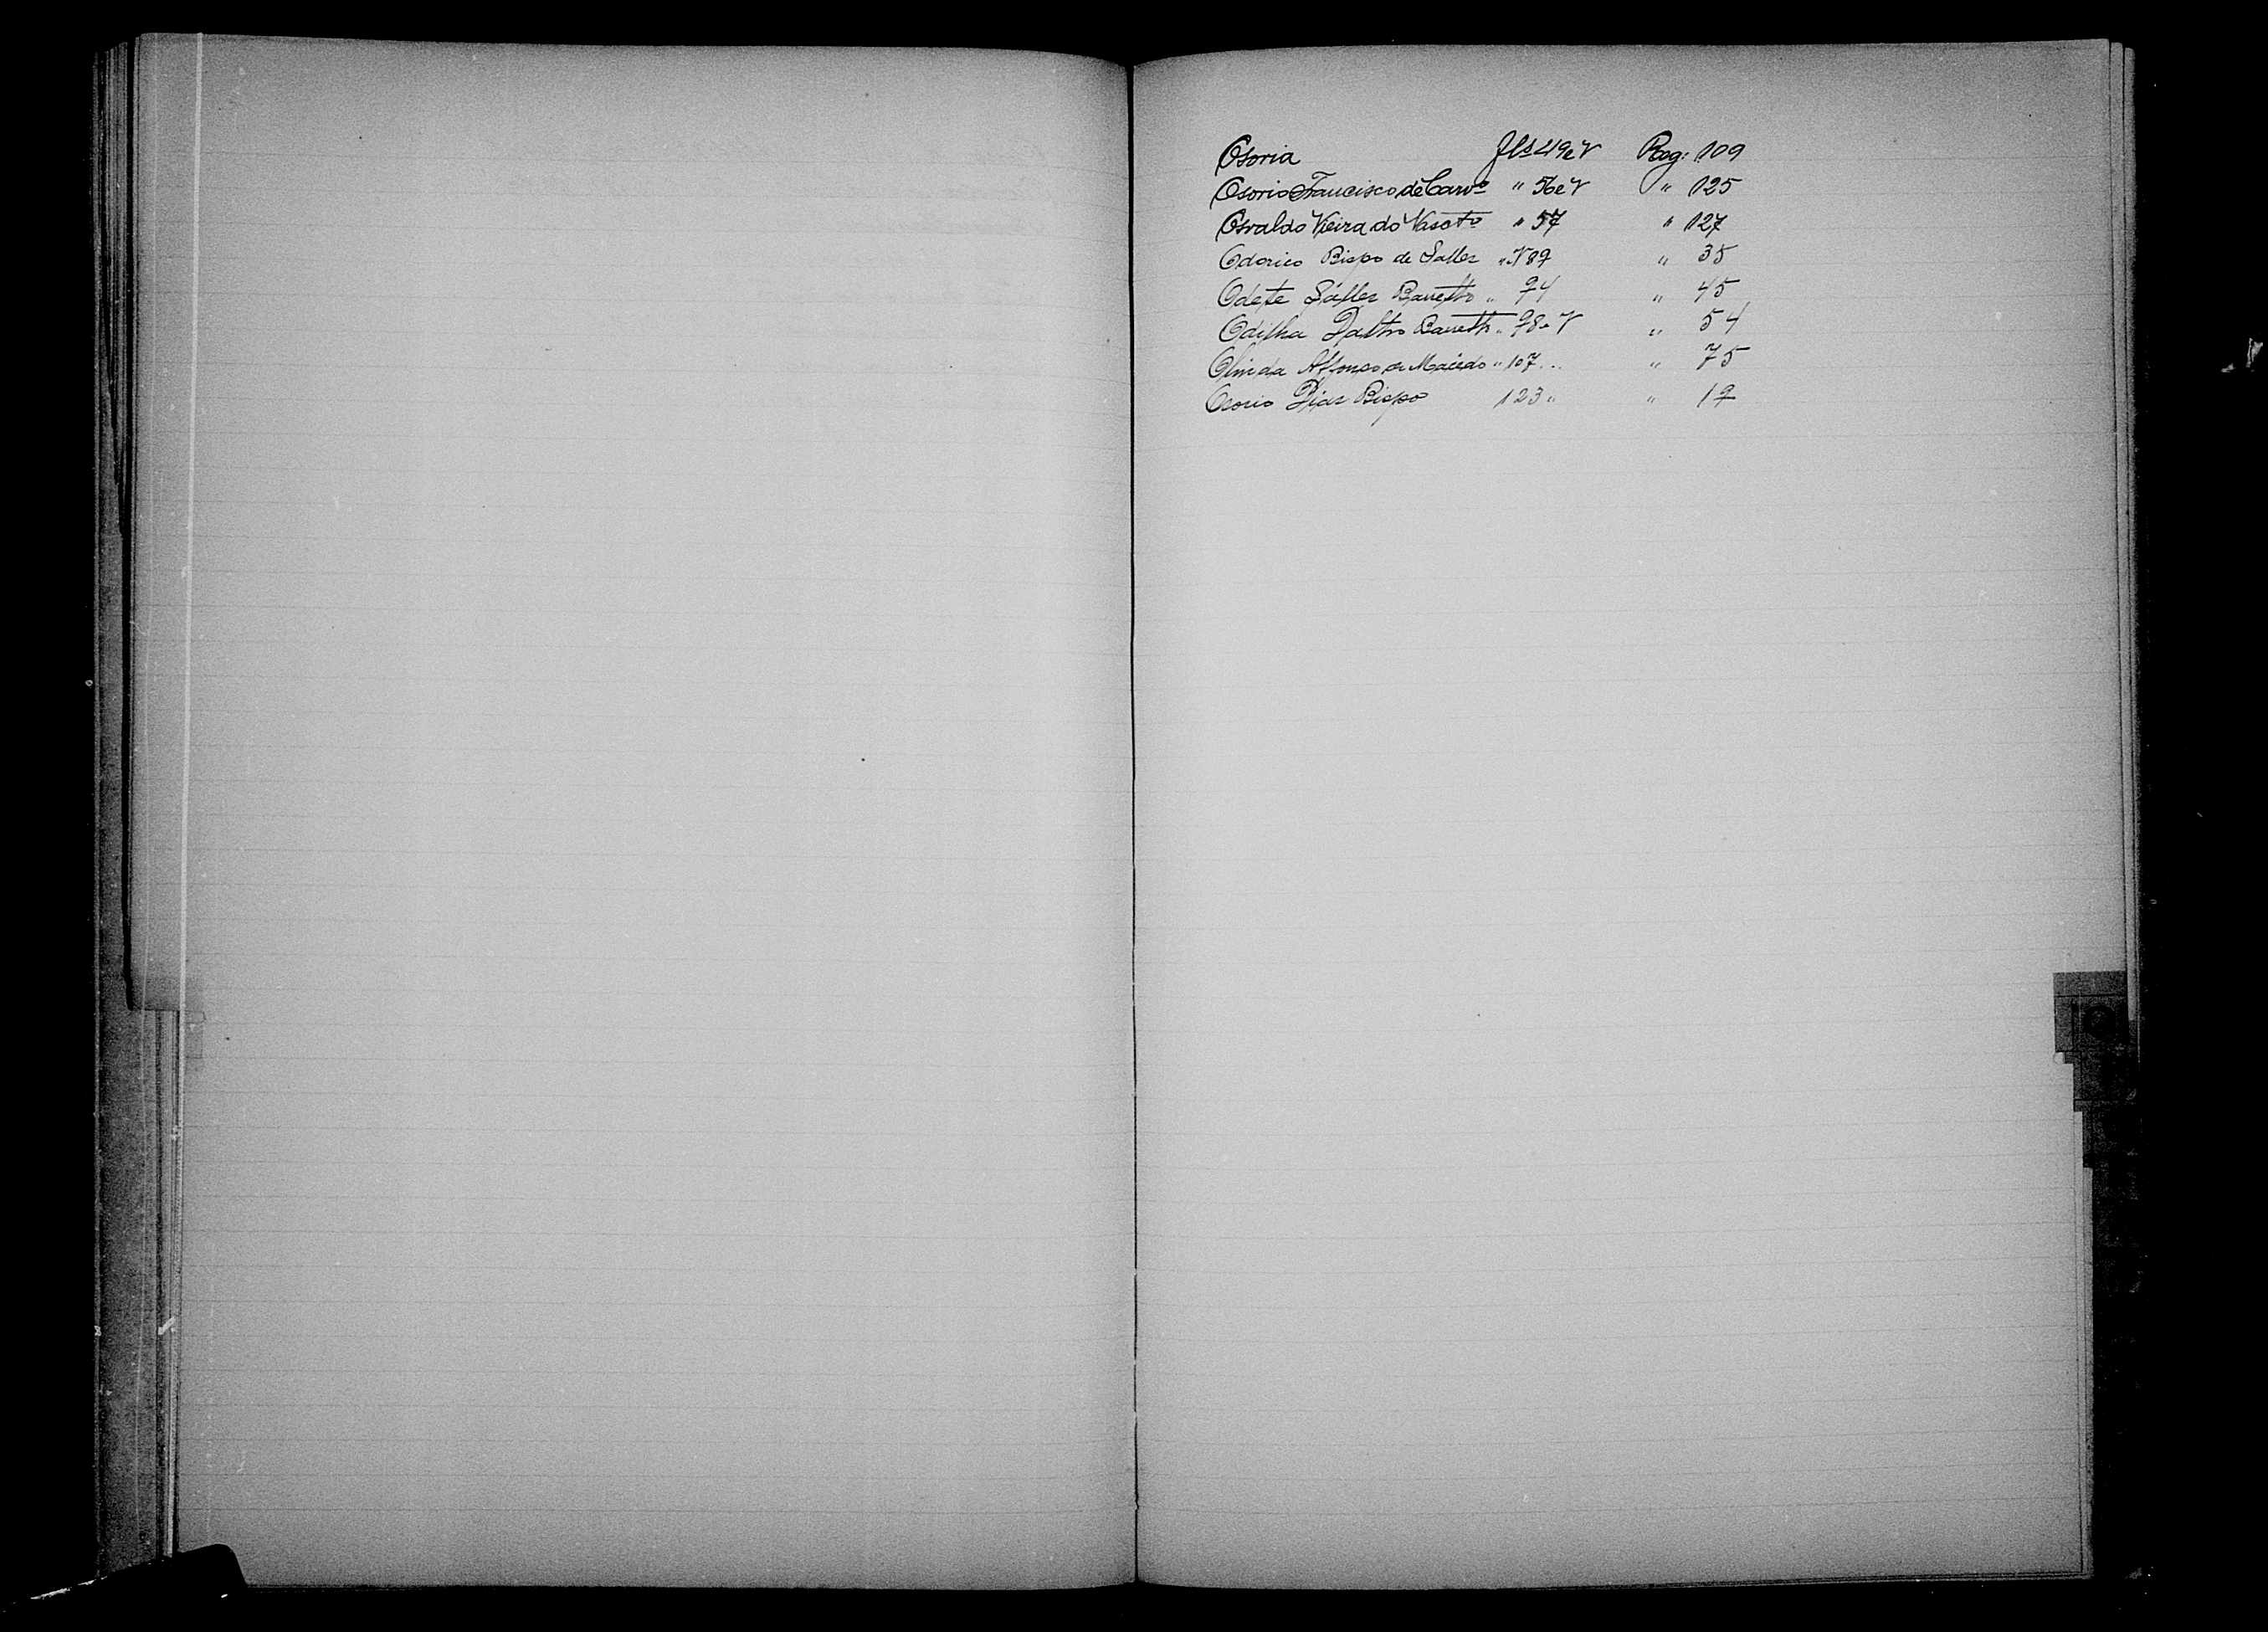 Osoria Fls 49 e V Rog: 109
Osorio Francisco de Carvº " 56 e V " 125
Osvaldo Vieira do Nascto " 57 " 127
Odorico Bispo de Salles " V 89 " 35
Odete Salles Barretto " 94 " 45
Odilha Daltro Barretto " 98 e V " 54
Olinda Affonso de Macêdo " 107 " 75
Osorio Dias Bispo 123 " " 19